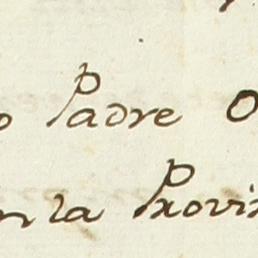 Padre
en la Provin